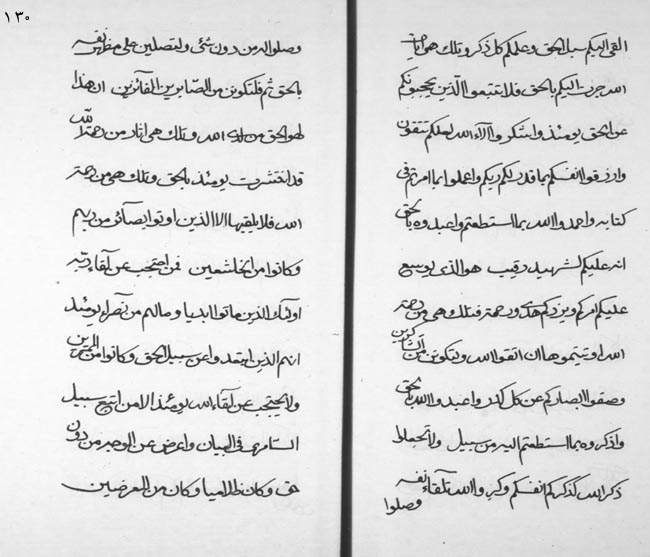 القى اليكم سبل الحق وعلمكم كل ذكر وتلك هي ايات
الله جرت اليكم بالحق فلا تتبعوا الذين يحجبونكم
عن الحق يومئذ واشكروا آلاء الله لعلكم تتقون
وارزقوا انفسكم بما قدر لكم ربكم واعملوا بما امرتم في
كتابه واحمدوا الله بما استطعتم واعبدوه بالحق
انه عليكم لشهيد رقيب هو الذي يوسع
عليكم امركم ويزدكم هدى ورحمة فتلك هي من رحمة
الله اوتيتموها ان اتقوا الله ولتكونن من الشاكرين
وصفوا ابصاركم عن كل كدر واعبدوا الله بالحق
واذكروه بما استطعتم اليه من سبيل ولا تجعلوا
ذكر الله كذكركم انفسكم وكبروا الله تلقاء نفسه
وصلوا
١٣٠
وصلوا اليه من دون شئ ولتصلين على مظهر نفسه
بالحق ثم فلتكونن من الصابرين الفائزين ان هذا
لهو الحق من لدى الله وتلك هي اثار من رحمة الله
قد انتشرت يومئذ بالحق وتلك هي من رحمة
الله فلا يلقيها الا الذين اوتوا بصائر من ربهم
وكانوا من الخاشعين فمن احتجب عن لقاء ربه
اولئك الذين ماتوا ابديا وما لهم من نصراء يومئذ
انهم الذين ابتعدوا عن سبيل الحق وكانوا من المجرمين
ولا يحتجب عن لقاء الله يومئذ الا من اتبع سبيل
السامري في البيان واعرض عن الوجه من دون
حق وكان ظلاميا وكان من المعرضين